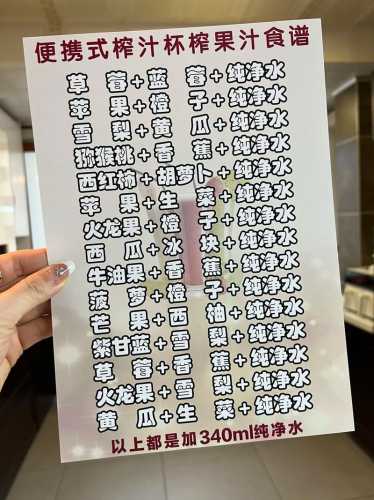 便携式榨汁杯榨果汁食谱
草莓+蓝莓+纯净水
苹果+橙子+纯净水
雪梨+黄瓜+纯净水
猕猴桃+香蕉+纯净水
西红柿+胡萝卜+纯净水
苹果+生菜+纯净水
火龙果+橙子+纯净水
西瓜+冰块+纯净水
牛油果+香蕉+纯净水
菠萝+橙子+纯净水
芒果+西柚+纯净水
紫甘蓝+雪梨+纯净水
草莓+香蕉+纯净水
火龙果+雪梨+纯净水
黄瓜+生菜+纯净水
以上都是加340ml纯净水